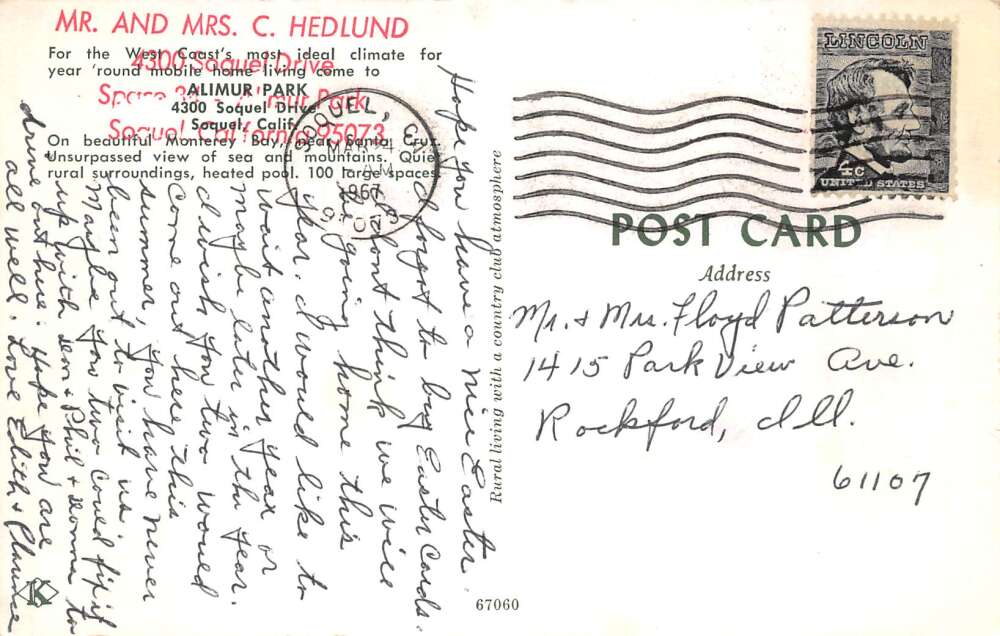 MR. AND MRS. C. HEDLUND
4300 Soquel Drive
Park
Soquel, California 95073
For the West Coast's most ideal climate for
year 'round mobile home living come to
ALIMUR PARK
4300 Soquel Drive
Soquel, Calif.
On beautiful Monterey Bay, near Santa Cruz.
Unsurpassed view of sea and mountains. Quiet
rural surroundings, heated pool. 100 large spaces.
SOQUEL,
MAR
AM
1967
Hope you have a nice Easter.
I forgot to buy Easter Cards.
I dont think we will
be going home this
year. I would like to
wait another year or
maybe later in the year.
I wish you two would
Come out here this
summer, you have never
been out to visit us.
Maybe you two could fix it
up with Phil & Donna to
drive out here. Hope you are
all well. Love Edith & Clarence
Rural living with a country club atmosphere
67060
LINCOLN
4c
UNITED STATES
POST CARD
Address
Mr. & Mrs. Floyd Patterson
1415 Park View Ave.
Rockford, Ill.
61107